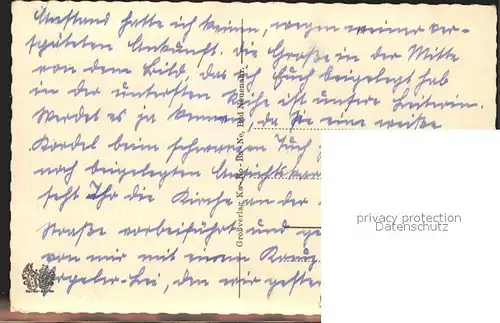 Anstand hatte ich keinen, wegen meiner ver-
späteten Ankunft. Die Große in der Mitte
von dem Bild, das ich Euch beigelegt hab
in der untersten Reihe ist unsere Leiterin.
Werdet es ja kennen, da sie eine weiße
Kordel beim schwarzen Tuch
nach beigelegten Ansichtskar
seht Ihr die Kirche an der
Straße vorbeiführt und
von mir mit einem Kreuz
-lei, den wir gestern
Großverlag Ka-Ro-Bo-Ne, Bad Neuenahr.
privacy protection
Datenschutz